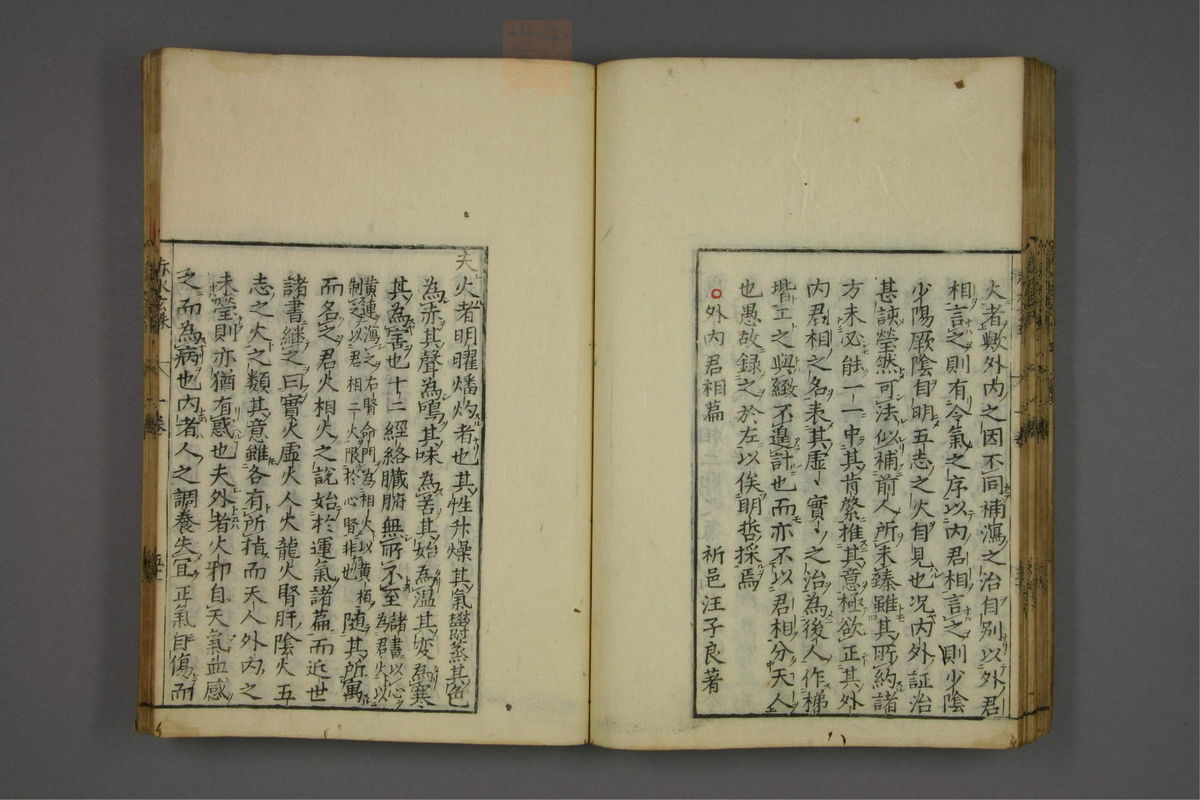 火者數外内之因不同補瀉之治自別以外君
相言之則有令氣之序以内君相言之則少陰
少陽厥陰自明五志之火自見也况内外証治
甚詼瑩然可法似補前人所未臻雖其所約諸
方未必能一一中其肯綮推其意極欲正其外
内君相之名表其虛虛實實之治為後人作梯
堦工之與緻不遑計也而亦不以君相分天人
也愚故錄之於左以俟明哲採焉
外内君相篇 祈邑汪子良著
夫火者明曜燔灼者也其性升燥其氣鬱蒸其色
為赤其聲為鳴其味為苦其始為温其変為寒
其為害也十二經絡臓腑無所不至諸書以心為君火以
黄連瀉之右腎命門為相火以黄栢
制之以君相二火限於心腎非也随其所寓
而名之君火相火之説始於運氣諸篇而近世
諸書継之曰實火虛火人火龍火腎肝陰火五
志之火之類其意雖各有所指而天人外内之
未瑩則亦猶有惑也夫外者火邪自天氣血感
之而為病也内者人之調養失宜正氣自傷而
赤水玄珠 一卷